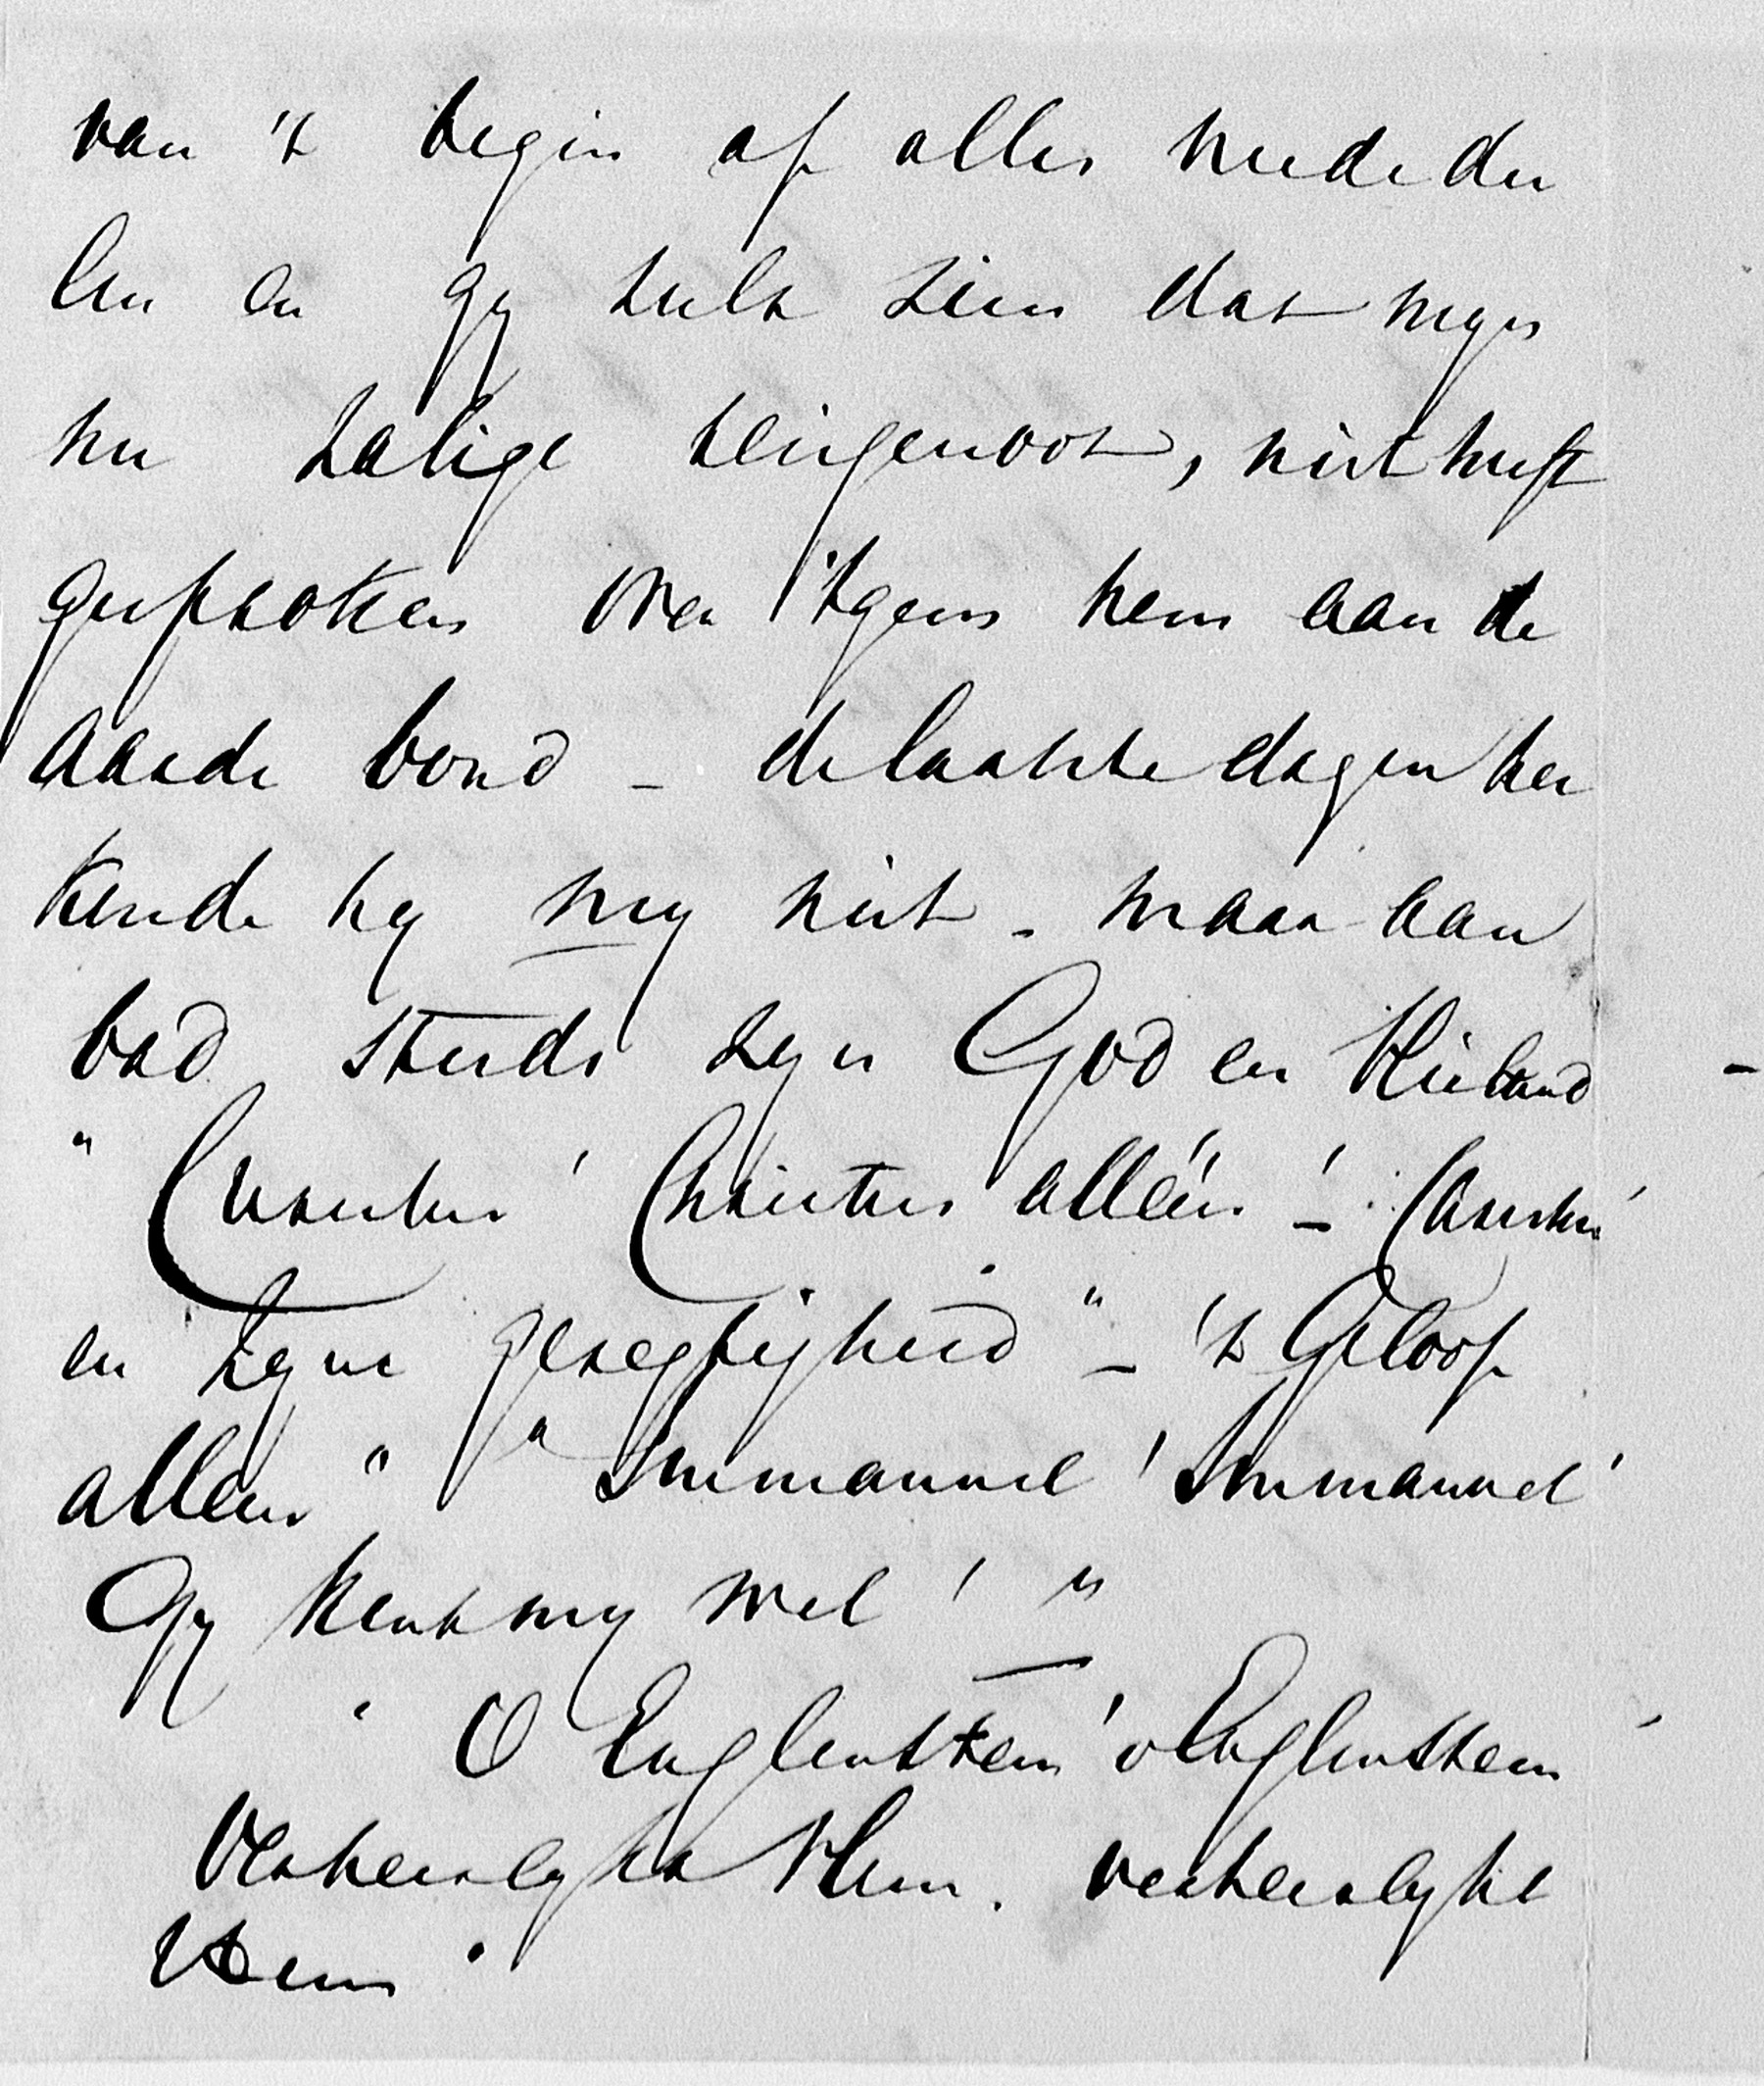 van 't begin af alles mededee
len en gy zult zien dat myn
nu zalige echtgenoot, niet heeft
gesproken over 'tgeen hem aan de
aarde bond – de laatste dagen her
kende hy my niet – maar aan
bad steeds zyn God en Heiland –
" Christus! Christus alléén! – Christus!
en zyne geregtigheid" – 't Geloof
alleen" "Immanuel! Immanuel!
Gy kent my wel! "
O Englenstem! o Englenstem!
Verheerlykt Hem. verheerlykt
Hem.